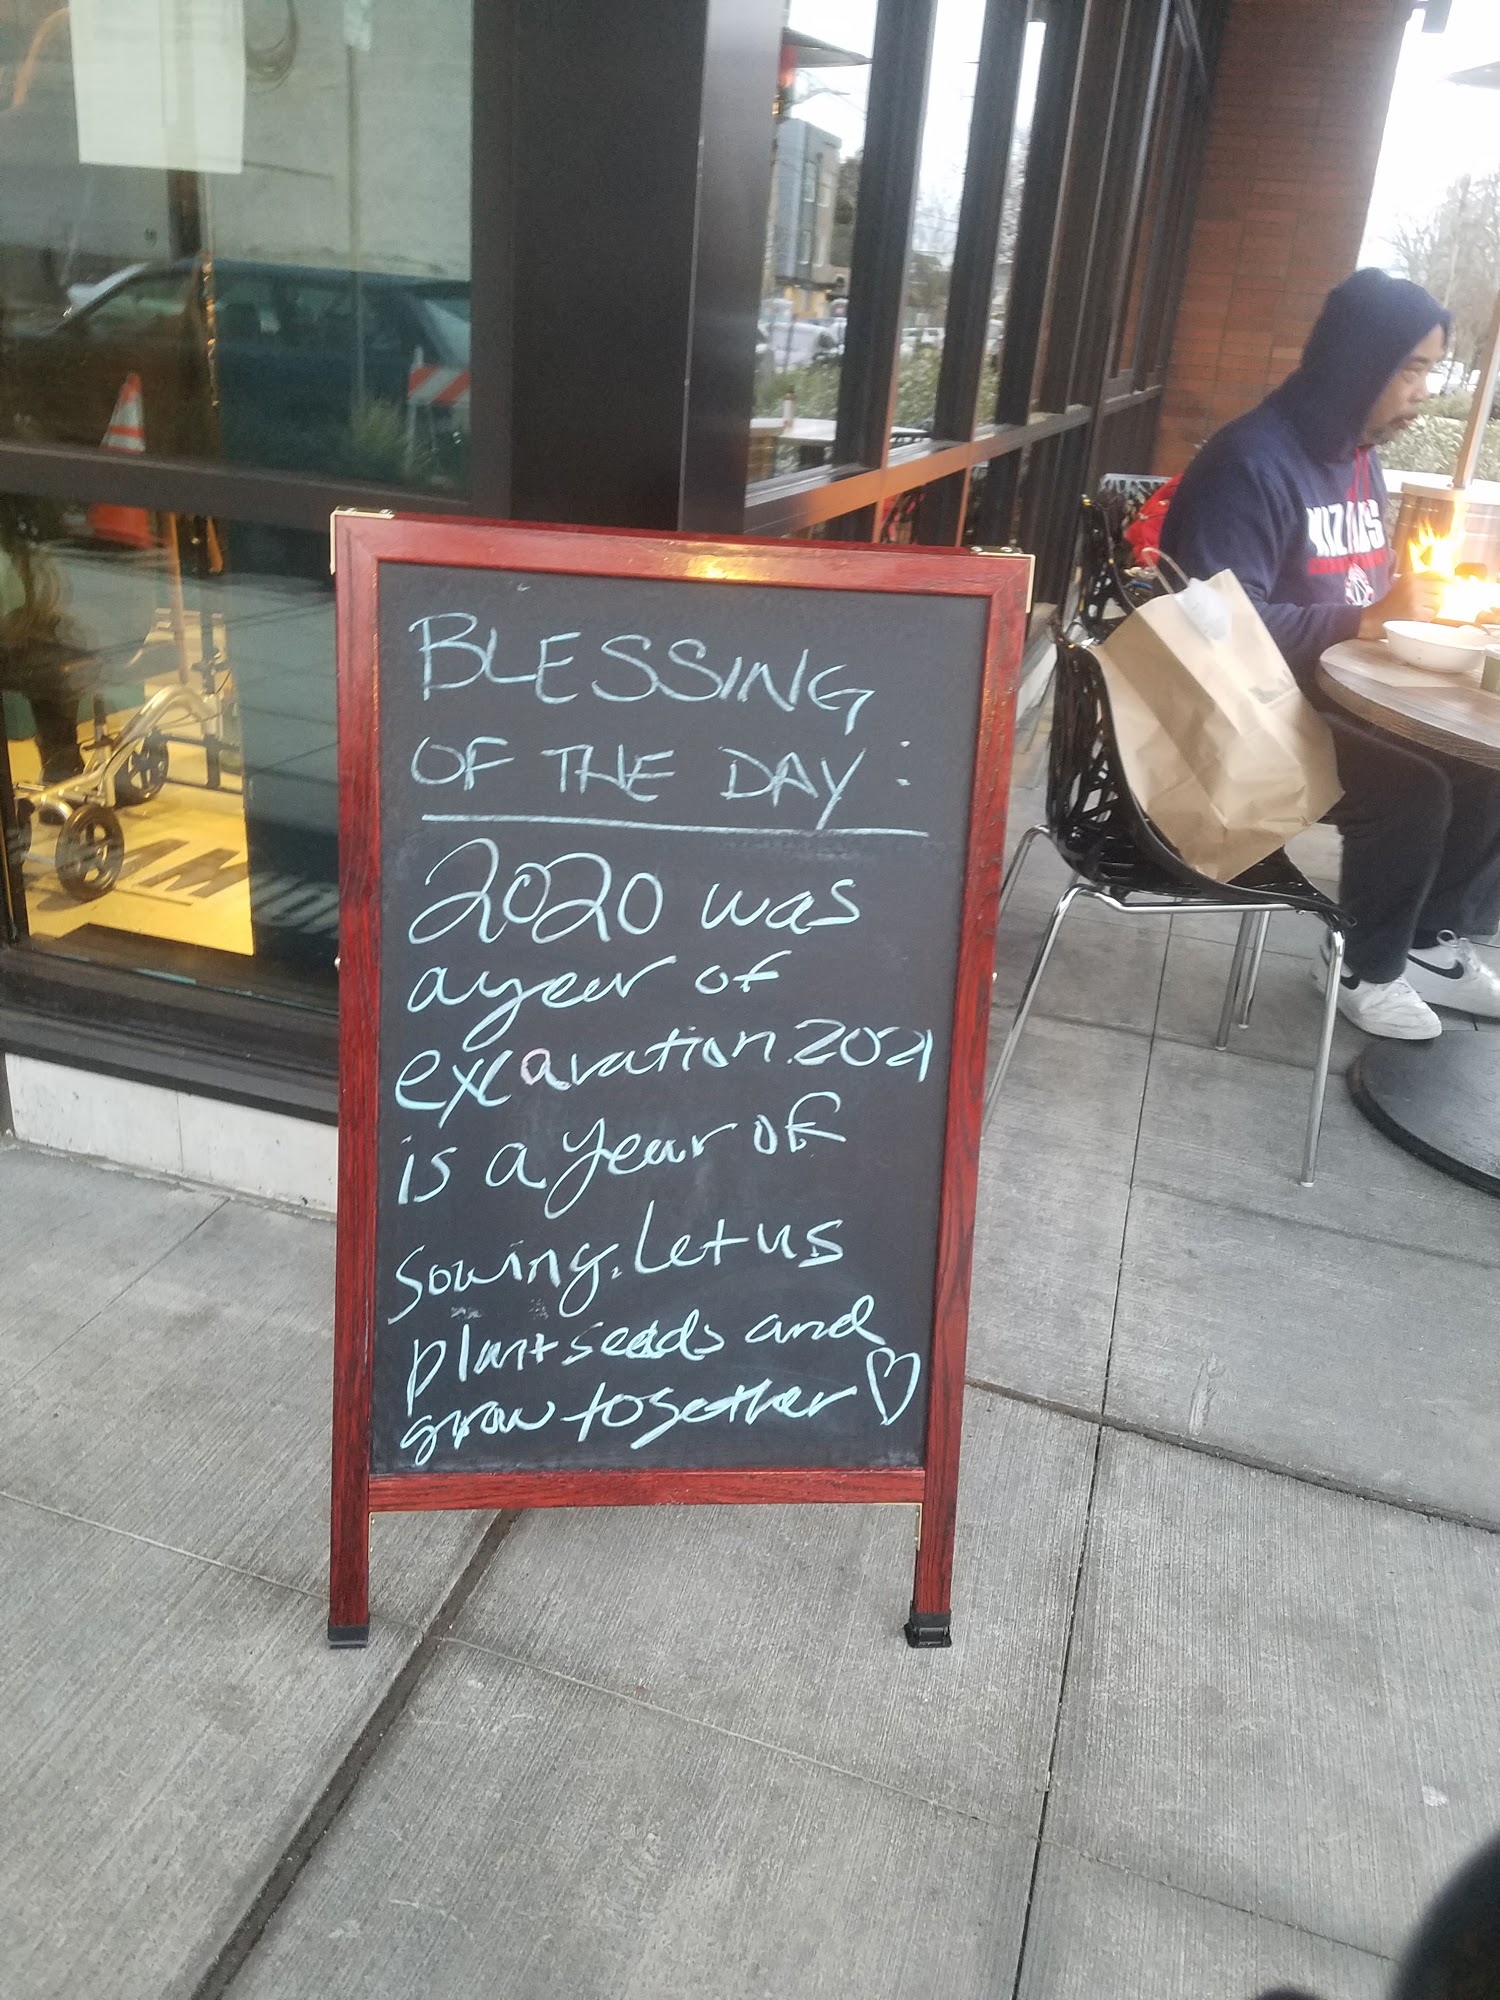 BLESSING
OF THE DAY:
2020 was
a year of
excavation. 2021
is a year of
sowing. Let us
plant seeds and
grow together ♡